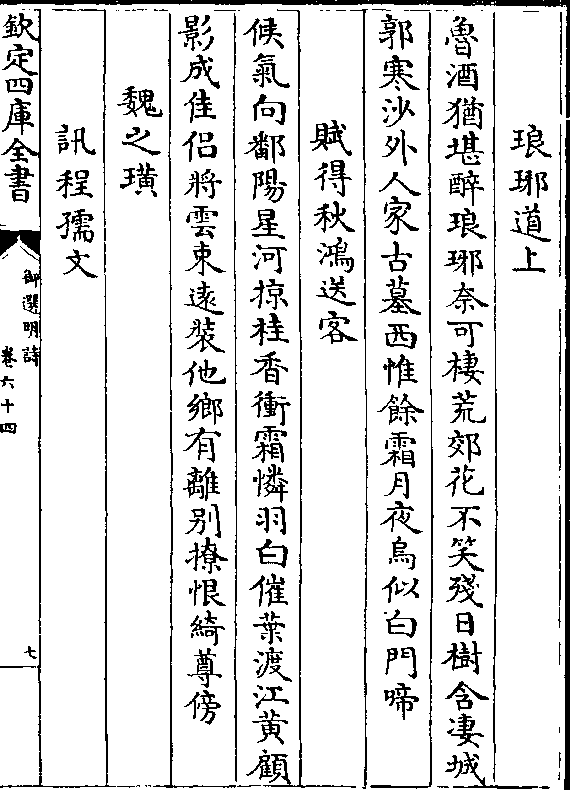 琅琊道上
魯酒猶堪醉琅琊奈可棲荒郊花不笑殘日樹含凄城
郭寒沙外人家古墓西惟餘霜月夜烏似白門啼
賦得秋鴻送客
候氣向鄱陽星河掠桂香衝霜憐羽白催葉渡江黄顧
影成佳侶將雲束逺裝他鄉有離别撩恨綺尊傍
魏之璜
訊程孺文
欽定四庫全書
御選明詩
卷六十四
七